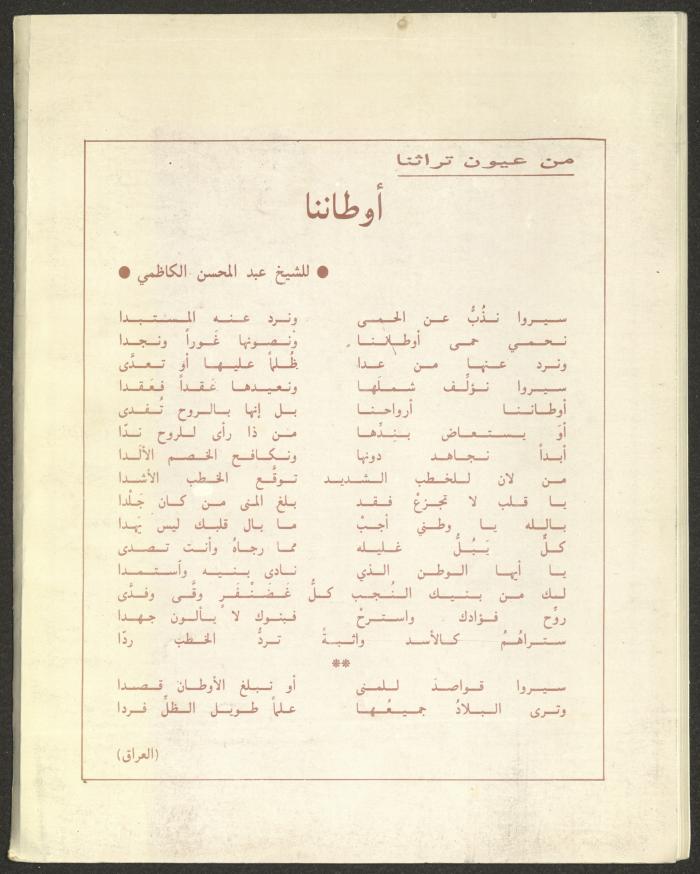 من عيون تراثنا
أوطاننا
● للشيخ عبد المحسن الكاظمي ●
سيروا نذُبُّ عن الحمى ونرد عنه المستبدا
نحمي حمى أوطاننا ونصونها غَوراً ونجدا
ونرد عنها من عدا ظُلماً عليها أو تعدَّى
سيروا نؤلِّف شملَها ونعيدها عَقداً فعَقدا
أوطاننا أرواحنا بل إنها بالروح تُفدى
أوَ يستعاض بنِدِّها من ذا رأى للروح ندّا
أبداً نجاهد دونها ونكافح الخصم الألدا
من لان للخطب الشديد توقَّع الخطب الأشدا
يا قلب لا تجزعْ فقد بلغ المنى من كان جَلْدا
بالله يا وطني أجبْ ما بال قلبك ليس يَهدا
كلٌّ يَبُلُّ غليله مما رجاهُ وأنت تصدى
يا أيها الوطن الذي نادى بنيه واَستمدا
لك من بنيك النُجب كلُّ غَضَنْفَرٍ وقَّى وفدَّى
روِّح فؤادك واسترحْ فبنوك لا يألون جهدا
ستراهُمُ كالأسد واثبةً تردُّ الخطبَ ردّا
**
سيروا قواصدَ للمنى أو نبلغ الأوطان قصدا
وترى البلادُ جميعُها علماً طويلَ الظلِّ فردا
(العراق)